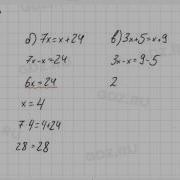 б) 7x = x + 24
7x - x = 24
6x = 24
x = 4
7·4 = 4 + 24
28 = 28
в) 3x + 5 = x + 9
3x - x = 9 - 5
2